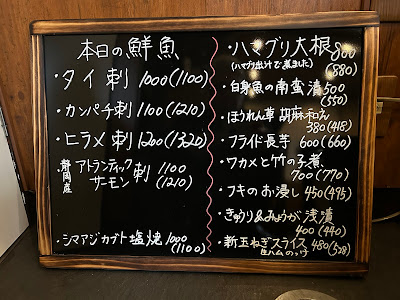 本日の鮮魚
・タイ刺 1000(1100)
・カンパチ刺 1100(1210)
・ヒラメ刺 1200(1320)
静岡産
アトランティック
サーモン刺 1100
(1210)
・シマアジカブト塩焼 1000
(1100)
・ハマグリ大根 800
(ハマグリ出汁で煮ました)
(880)
・白身魚の南蛮漬 500
(550)
・ほうれん草胡麻和え
380(418)
・フライド長芋 600(660)
・ワカメと竹の子煮
700(770)
・フキのお浸し 450(495)
・きゅうり&みょうが浅漬
400(440)
・新玉ねぎスライス 480(528)
生ハムのっけ